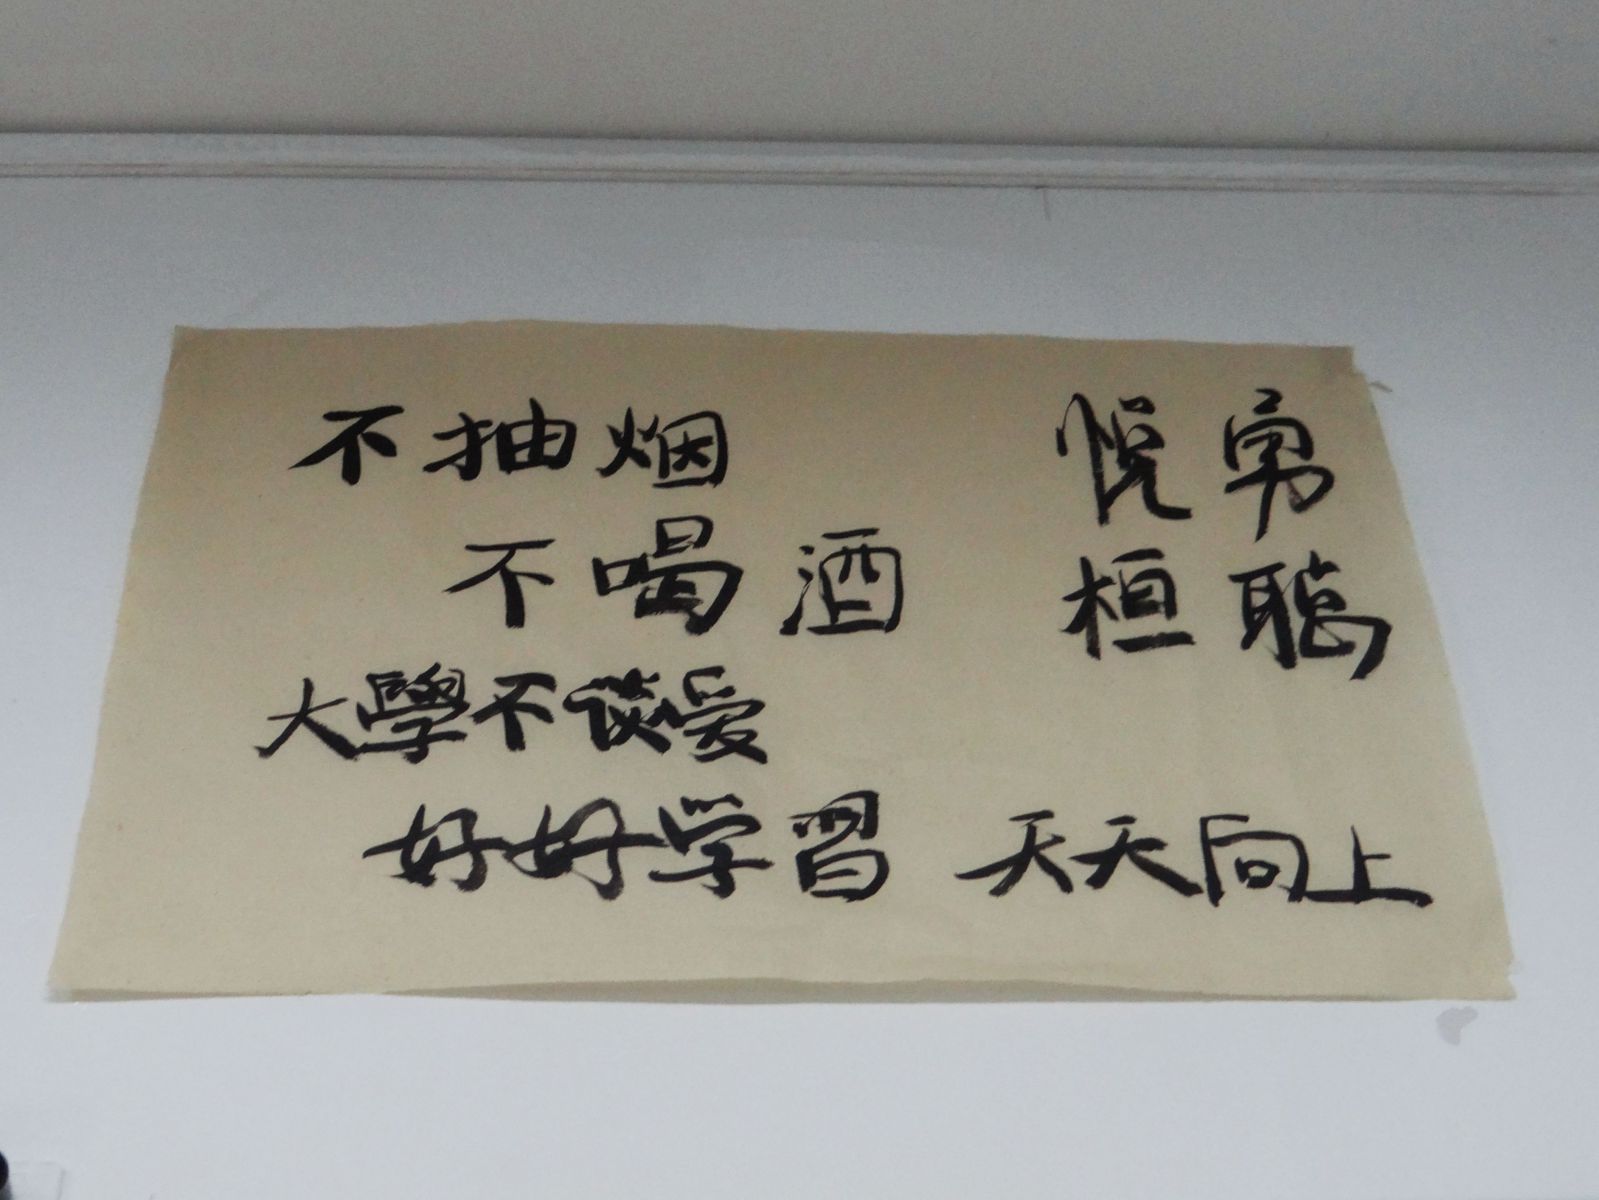 不抽烟 悦勇
不喝酒 桓聪
大學不谈爱
好好学習 天天向上